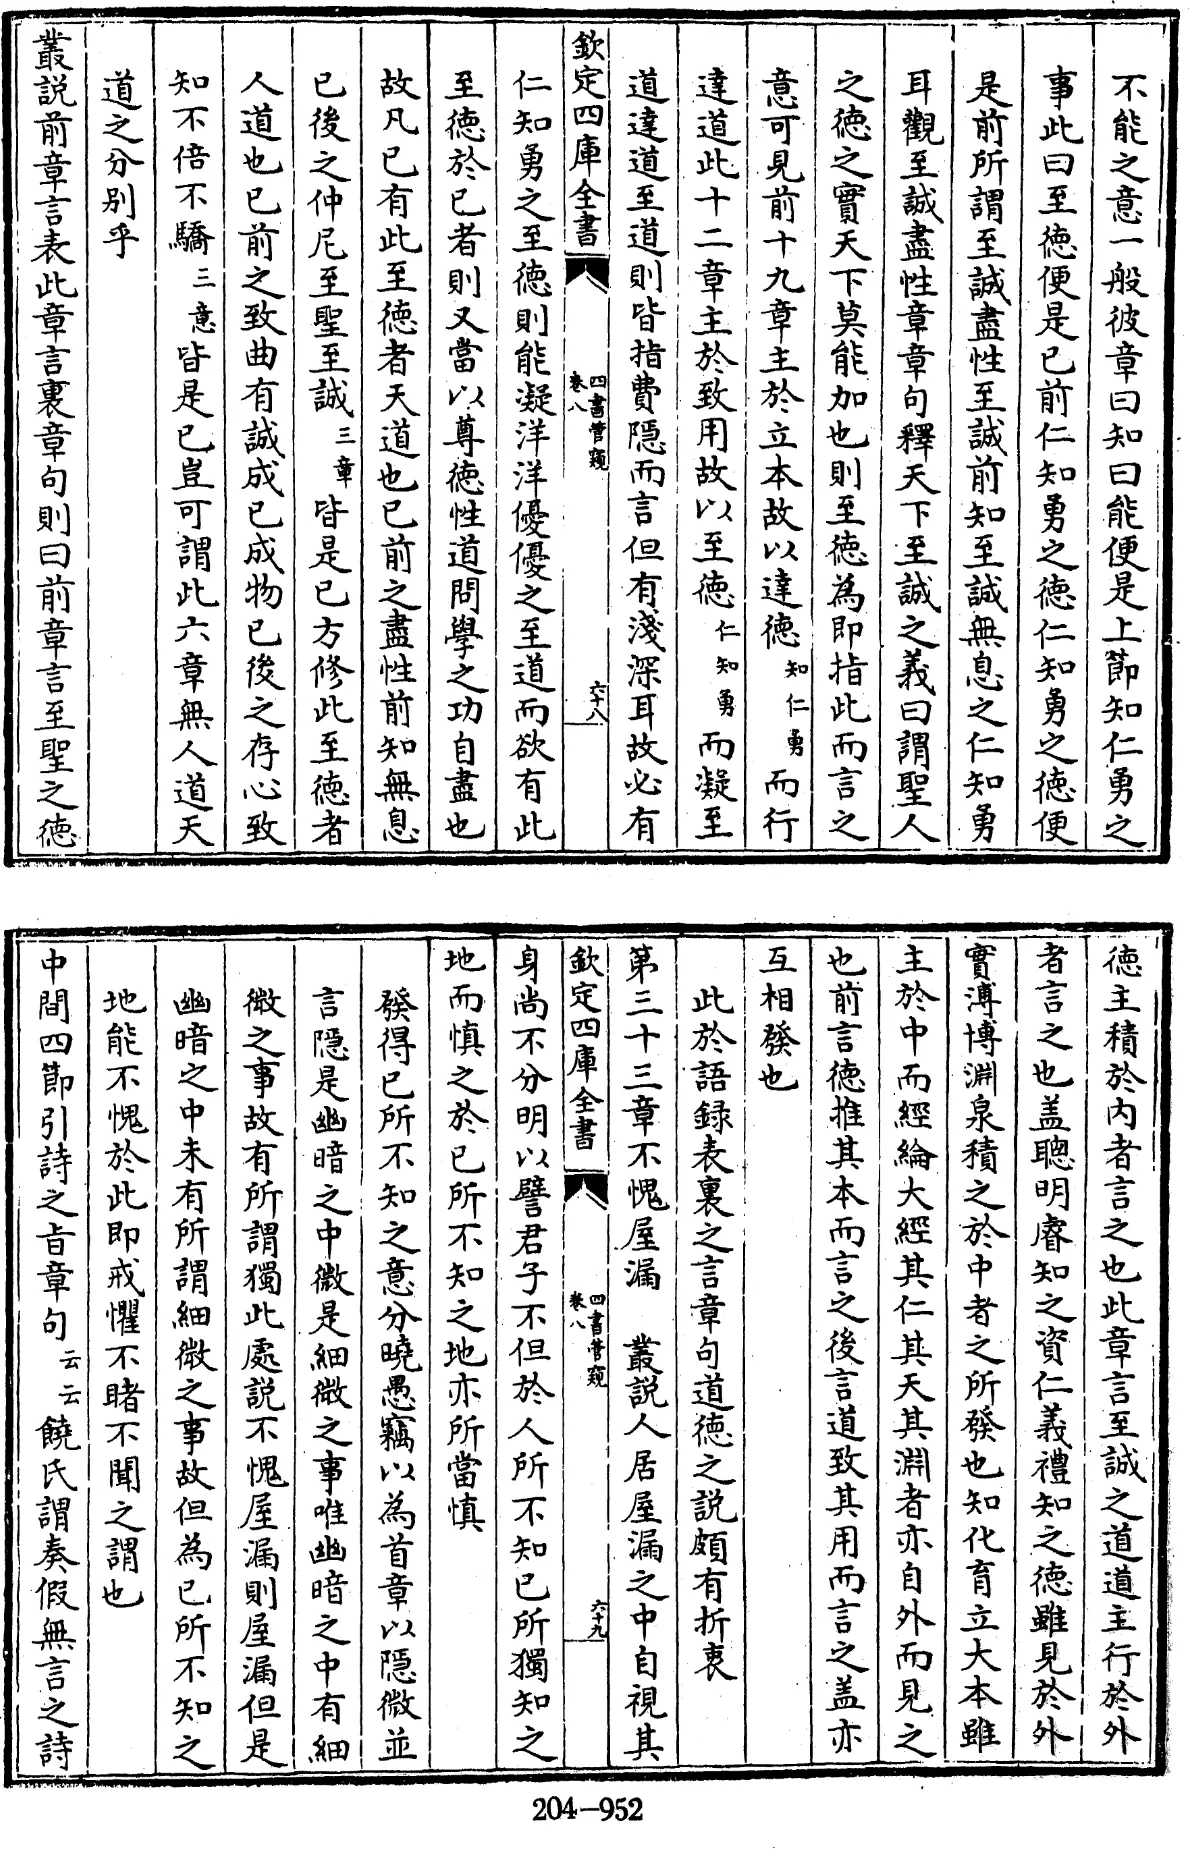 不能之意一般彼章曰知曰能便是上節知仁勇之
事此曰至德便是已前仁知勇之德仁知勇之德便
是前所謂至誠盡性至誠前知至誠無息之仁知勇
耳觀至誠盡性章章句釋天下至誠之義曰謂聖人
之德之實天下莫能加也則至德為即指此而言之
意可見前十九章主於立本故以達德知仁勇而行
達道此十二章主於致用故以至德仁知勇而凝至
道達道至道則皆指費隱而言但有淺深耳故必有
欽定四庫全書
四書管窺
卷八
六十八
仁知勇之至德則能凝洋洋優優之至道而欲有此
至德於已者則又當以尊德性道問學之功自盡也
故凡已有此至德者天道也已前之盡性前知無息
已後之仲尼至聖至誠三章皆是已方修此至德者
人道也已前之致曲有誠成已成物已後之存心致
知不倍不驕三意皆是已豈可謂此六章無人道天
道之分別乎
叢説前章言表此章言裏章句則曰前章言至聖之德
德主積於内者言之也此章言至誠之道道主行於外
者言之也盖聰明睿知之資仁義禮知之德雖見於外
實溥博淵泉積之於中者之所發也知化育立大本雖
主於中而經綸大經其仁其天其淵者亦自外而見之
也前言德推其本而言之後言道致其用而言之盖亦
互相發也
此於語録表裏之言章句道德之説頗有折衷
第三十三章不愧屋漏 叢説人居屋漏之中自視其
欽定四庫全書
四書管窺
卷八
六十九
身尚不分明以譬君子不但於人所不知已所獨知之
地而慎之於已所不知之地亦所當慎
發得已所不知之意分曉愚竊以為首章以隱微並
言隱是幽暗之中微是細微之事唯幽暗之中有細
微之事故有所謂獨此處説不愧屋漏則屋漏但是
幽暗之中未有所謂細微之事故但為已所不知之
地能不愧於此即戒懼不睹不聞之謂也
中間四節引詩之旨章句云云饒氏謂奏假無言之詩
204-952